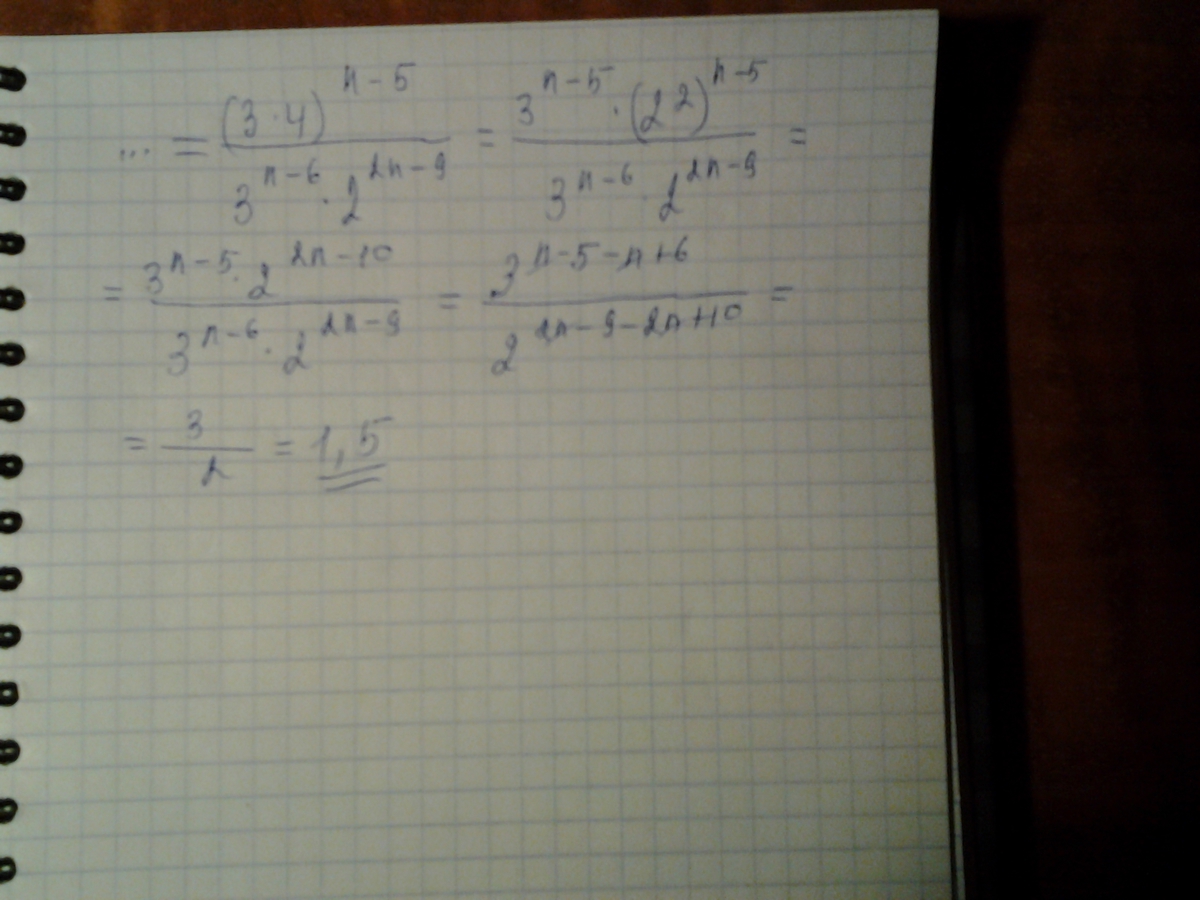 ... = (3·4)^(n-5) / (3^(n-6) · 2^(2n-9)) = (3^(n-5) · (2^2)^(n-5)) / (3^(n-6) · 2^(2n-9)) =
= (3^(n-5) · 2^(2n-10)) / (3^(n-6) · 2^(2n-9)) = 3^(n-5-n+6) / 2^(2n-9-2n+10) =
= 3/2 = 1,5